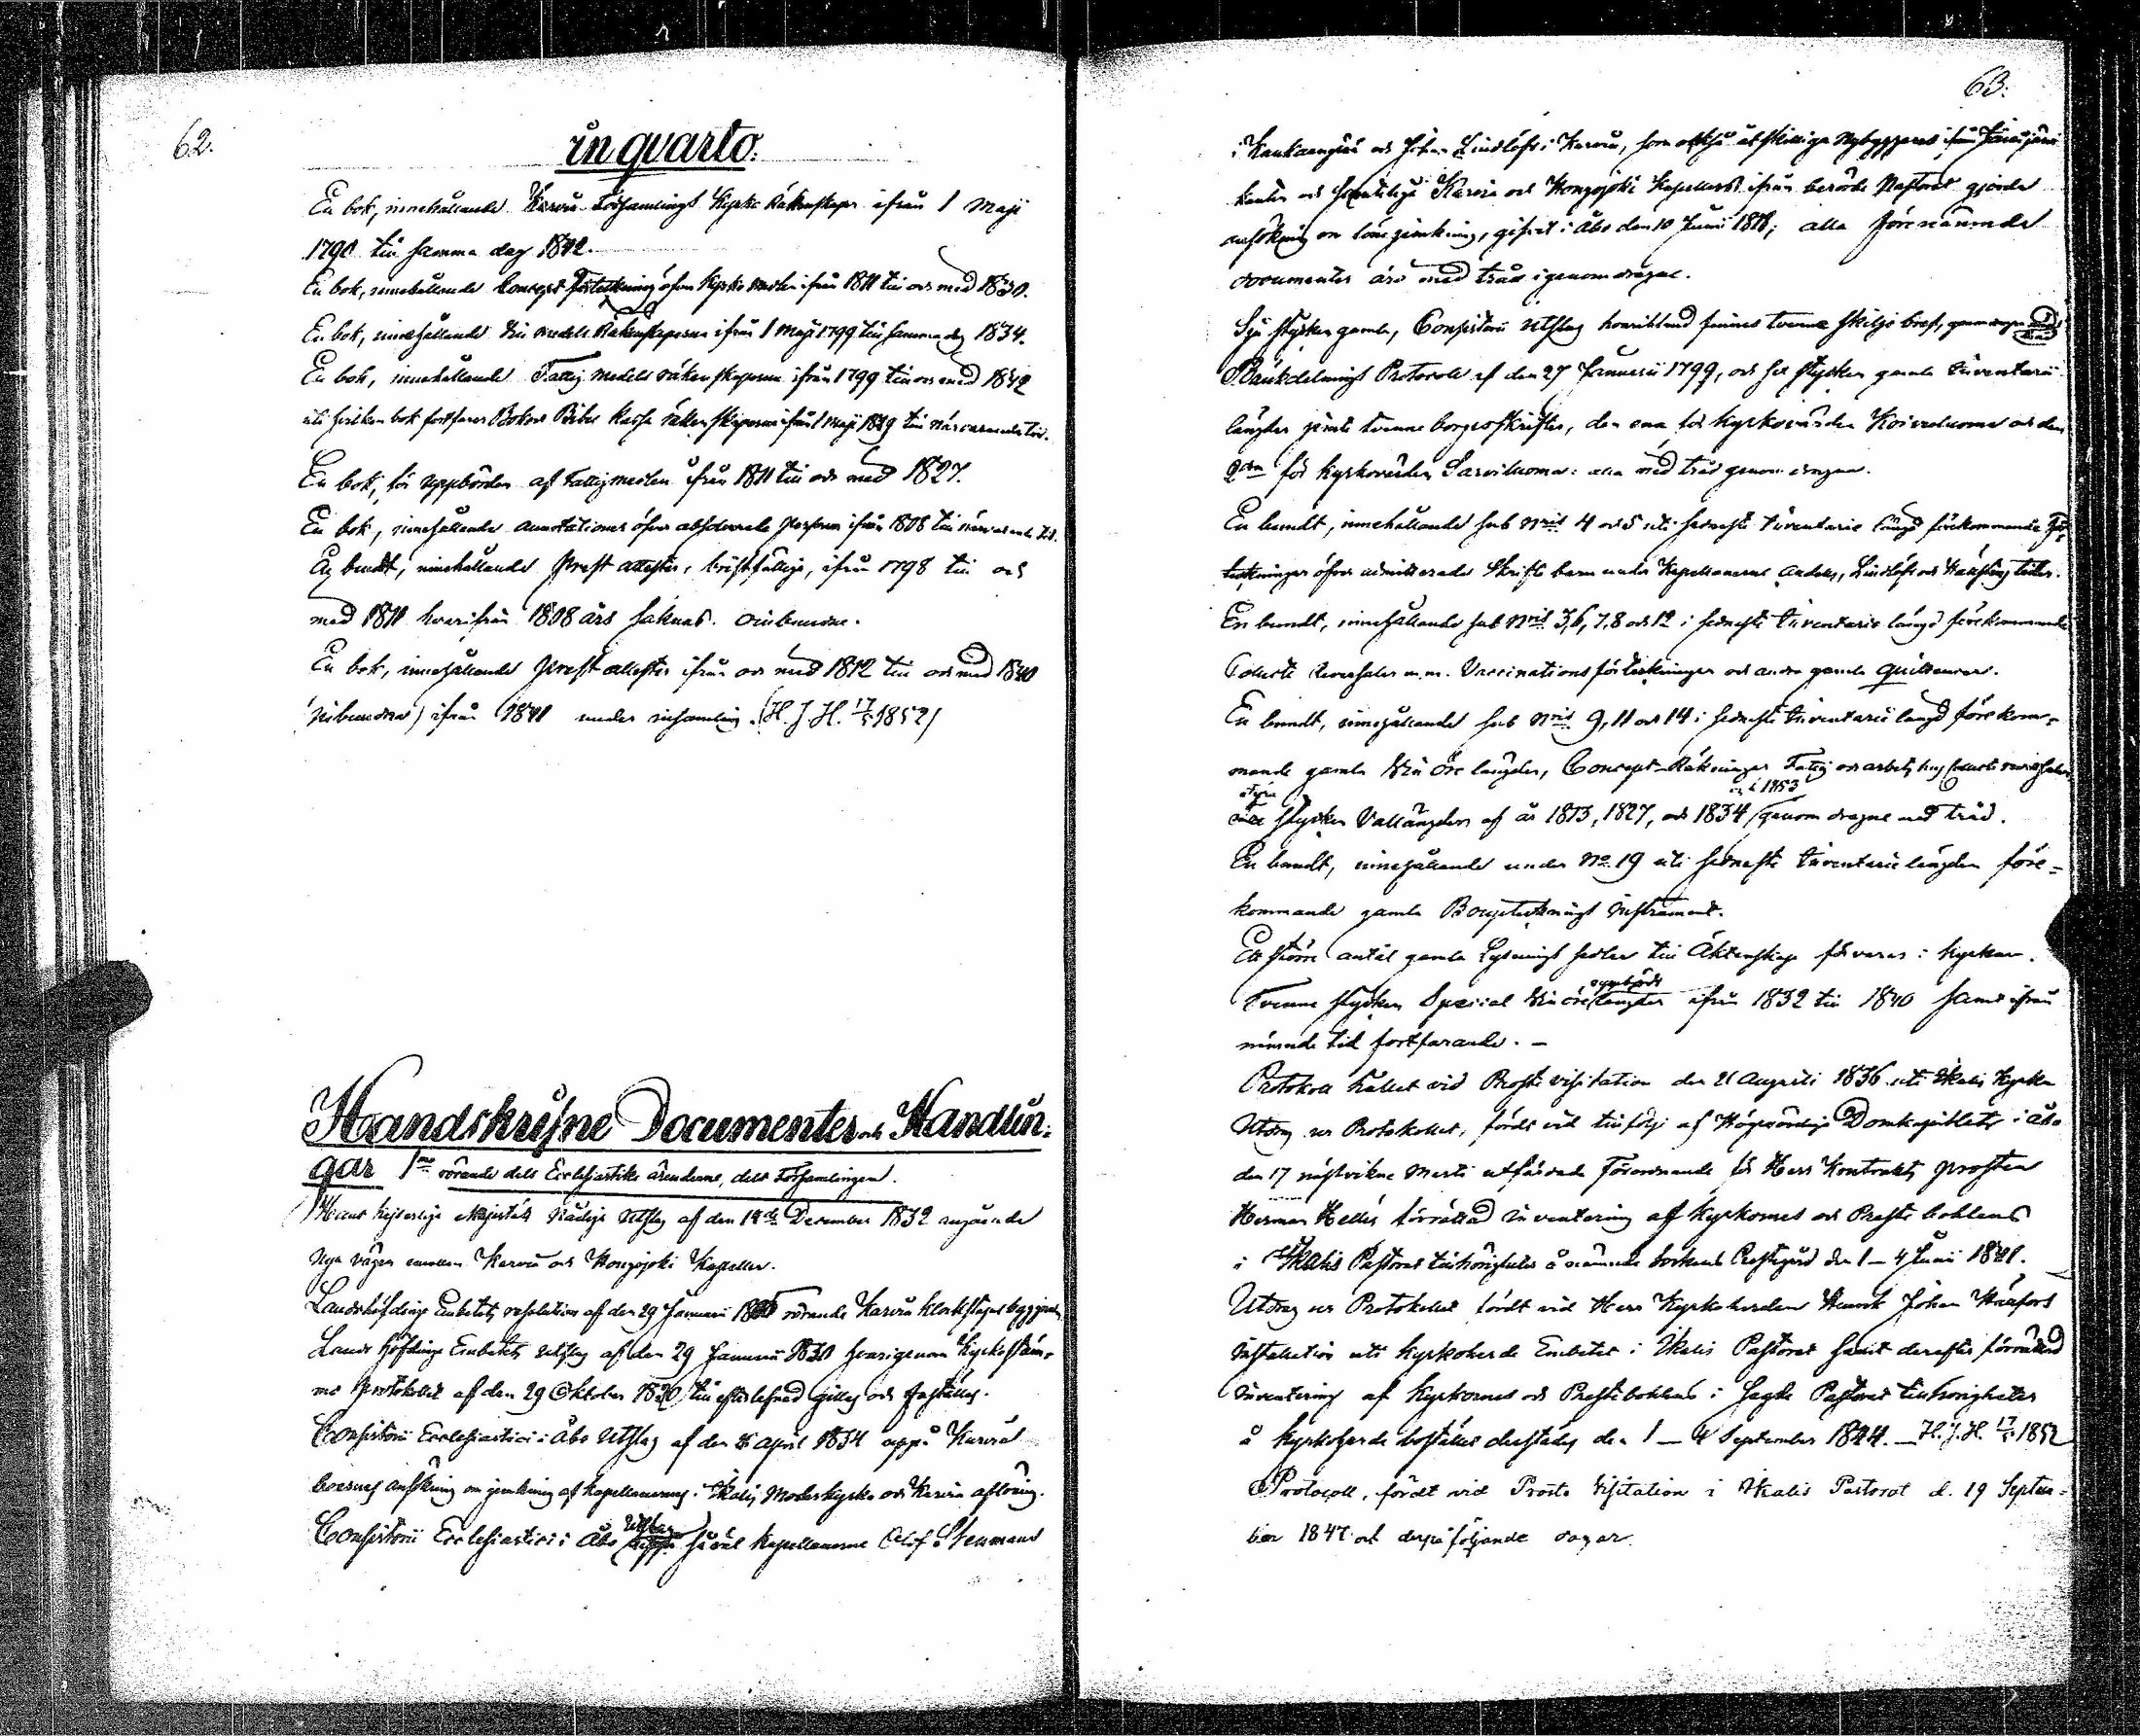 62.
in qvarto.
En bok, innehållande Karvia Församlings Kyrko Räkenskaper ifrån 1 Maji
1790 till samma dag 1842.
En bok, innehållande Concept Förteckning öfver Kyrko medlen ifrån 1811 till och med 1830.
En bok, innehållande medels Räkenskaperna ifrån 1 Maji 1799 till samma dag 1834.
En bok, innehållande Fattig medels räkenskaperna ifrån 1799 till och med 1842
uti hvilken bok fortfares Bibel Kassa räkenskaperna ifrån 1 Maji 1829 till närvarande tid.
En bok, för uppbörden af Fattigmedlen ifrån 1811 till och med 1827.
En bok, innehållande Annotationer öfver absolverade personer ifrån 1808 till närvarande tid.
En bundt, innehållande Prest attester, bristfällige, ifrån 1798 till och
med 1811 hvarifrån 1808 års saknas. oinbundne.
En bok, innehållande Prest attester ifrån och med 1812 till och med 1840
inbunden) ifrån 1841 under insamling. (H. J. H. 17/5 1852)
Handskrifne Documenter och Handlin-
gar 1mo rörande dels Ecclesiastike ärenderne, dels Församlingen.
Hans Kejserliga Majestäts Nådiga Utslag af den 14de December 1832 angående
Nya vägen emellan Karvia och Hongojoki Kapeller.
Landshöfdinge Embetets resolution af den 29 Januarii rörande Karvia Klockstapels byggnad
Lands höfdinge Embetets Utslag af den 29 Januarii 1830 hvarigenom Kyrkostäm-
mo protokollet af den 29 Oktober 1820 till efterlefnad gilles och fastställes.
Consistorii Ecclesiastici i Åbo Utslag af den April 1834 uppå Karvia
boernes ansökning om jemkning af Kapellanernes i Ikalis Moderkyrka och Karvia aflöning.
Consistorii Ecclesiastici i Åbo Utslag såväl Kapellanerne Olof Neumans
63.
i Kankaanpää och Johan Lindlöfs i Karvia, som ock åtskillige Nybyggares ifrån
 och samtelige Karvia och Hongojoki Kapellers ifrån berörde Pastorat gjorde
ansökning om löne jemkning, gifvet i Åbo den 10 Junii 1818; alla förenämnde
documenter äro med tråd igenomdragne.
Sju stycken gamla, Consistorii Utslag hvaribland finnes tvenne skiljo bref, genomdragne med tråd
Rånkdelnings Protocoll af den 27 Januarii 1799, och sex stycken gamla Inventarii
längder jemte tvenne borgesskrifter, den ena för Kyrkovärden Koivuluoma och den
2dra för Kyrkovärden Sarviluoma: alla med tråd genom dragne.
En bundt, innehållande sub Nris 4 och 5 uti sednaste Inventarie längd förekommande För-
teckningar öfver admitterade Skrifte barn under Kapellanerne Lindlöfs och tider.
En bundt, innehållande sub Nris 3, 6, 7, 8 och 12 i sednaste Inventarie längd förekommande
 m.m. Vaccinations förteckningar och andra gamla quittencer.
En bundt, innehållande sub Nris 9, 11 och 14 i sednaste Inventarii längd förekom-
mande gamla längder, Concept-Räkningar Fattig och
fyra stycken Vallängder af år 1813, 1827, och 1834 och 1853 genom dragne med tråd.
En bundt, innehållande under No 19 uti sednaste Inventarielängden före-
kommande gamla Bouptecknings Instrument.
Ett större antal gamla Lysnings sedlar till Äktenskap förvaras i Kyrkan.
Tvenne stycken Special uppbörds längder ifrån 1832 till 1840 samt ifrån
nämnde tid fortfarande. -
Protokoll hållet vid Prosti visitation den 21 Augusti 1836 uti Ikalis Kyrka
Utdrag ur Protokollet, fördt vid till följe af Högvördige Domkapitlets i Åbo
den 17 nästvikne Martii utfärdade Förordnande för Herr Kontrakts Prosten
Herman Hellén förrättad inventering af Kyrkornes och Preste bohlens
i Ikalis Pastorat tillhörigheter å nämnde Sockens Prestgård den 1-4 Junii 1841.
Utdrag ur Protokollet fördt vid Herr Kyrkoherden Henrik Johan Hårfors
installation uti Kyrkoherde Embetet i Ikalis Pastorat samt derefter förrättad
Inventering af Kyrkornes och Prestebohlens i Sagde Pastorat tillhörigheter
å Kyrkoherde bostället derstädes den 1-4 September 1844. - H. J. H. 17/5 1852
Protocoll, fördt vid Prosts Visitation i Ikalis Pastorat d. 19 Septem-
ber 1847 och derpåföljande dagar.